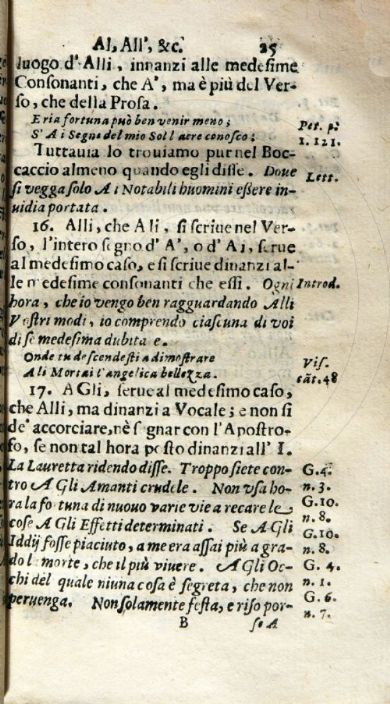 Al, All', &c. 25
luogo d'Alli, innanzi alle medesime
Consonanti, che A', ma è più del Ver-
so, che della Prosa.
E ria fortuna può ben venir meno;
S'A i Segni del mio Sol l'aere conosco; Pet. p̃
1. 121.
Tuttauia lo trouiamo pur nel Boc-
caccio almeno quando egli disse. Doue Lett.
si vegga solo A i Notabili huomini eßere in-
uidia portata.
16. Alli, che A li, si scriue nel Ver-
so, l'intero segno d'A', o d'Ai, serue
al medesimo caso, e si scriue dinanzi al-
le medesime consonanti che essi. Ogni Introd.
hora, che io vengo ben ragguardando Alli
Vostri modi, io comprendo ciascuna di voi
di se medesima dubita e.
Onde tu descendesti a dimostrare Vis.
A li Mortai l'angelica bellezza. cãt. 48
17. A Gli, serue al medesimo caso,
che Alli, ma dinanzi a Vocale; e non si
de' accorciare, nè segnar con l'Apostro-
fo, se non tal hora posto dinanzi all' I.
La Lauretta ridendo disse. Troppo siete con- G. 4.
tro A Gli Amanti crudele. Non vsa ho- n. 3.
ra la fo tuna di nuouo varie vie a recare le G. 10.
cose A Gli Effetti determinati. Se A Gli n. 8.
Iddij fosse piaciuto, a me era assai più a gra- G. 10.
do l morte, che il più viuere. A Gli Oc- n. 8.
G. 4.
chi del quale niuna cosa è segreta, che non n. 1.
peruenga. Non solamente festa, e riso por- G. 6.
n. 7.
B so A